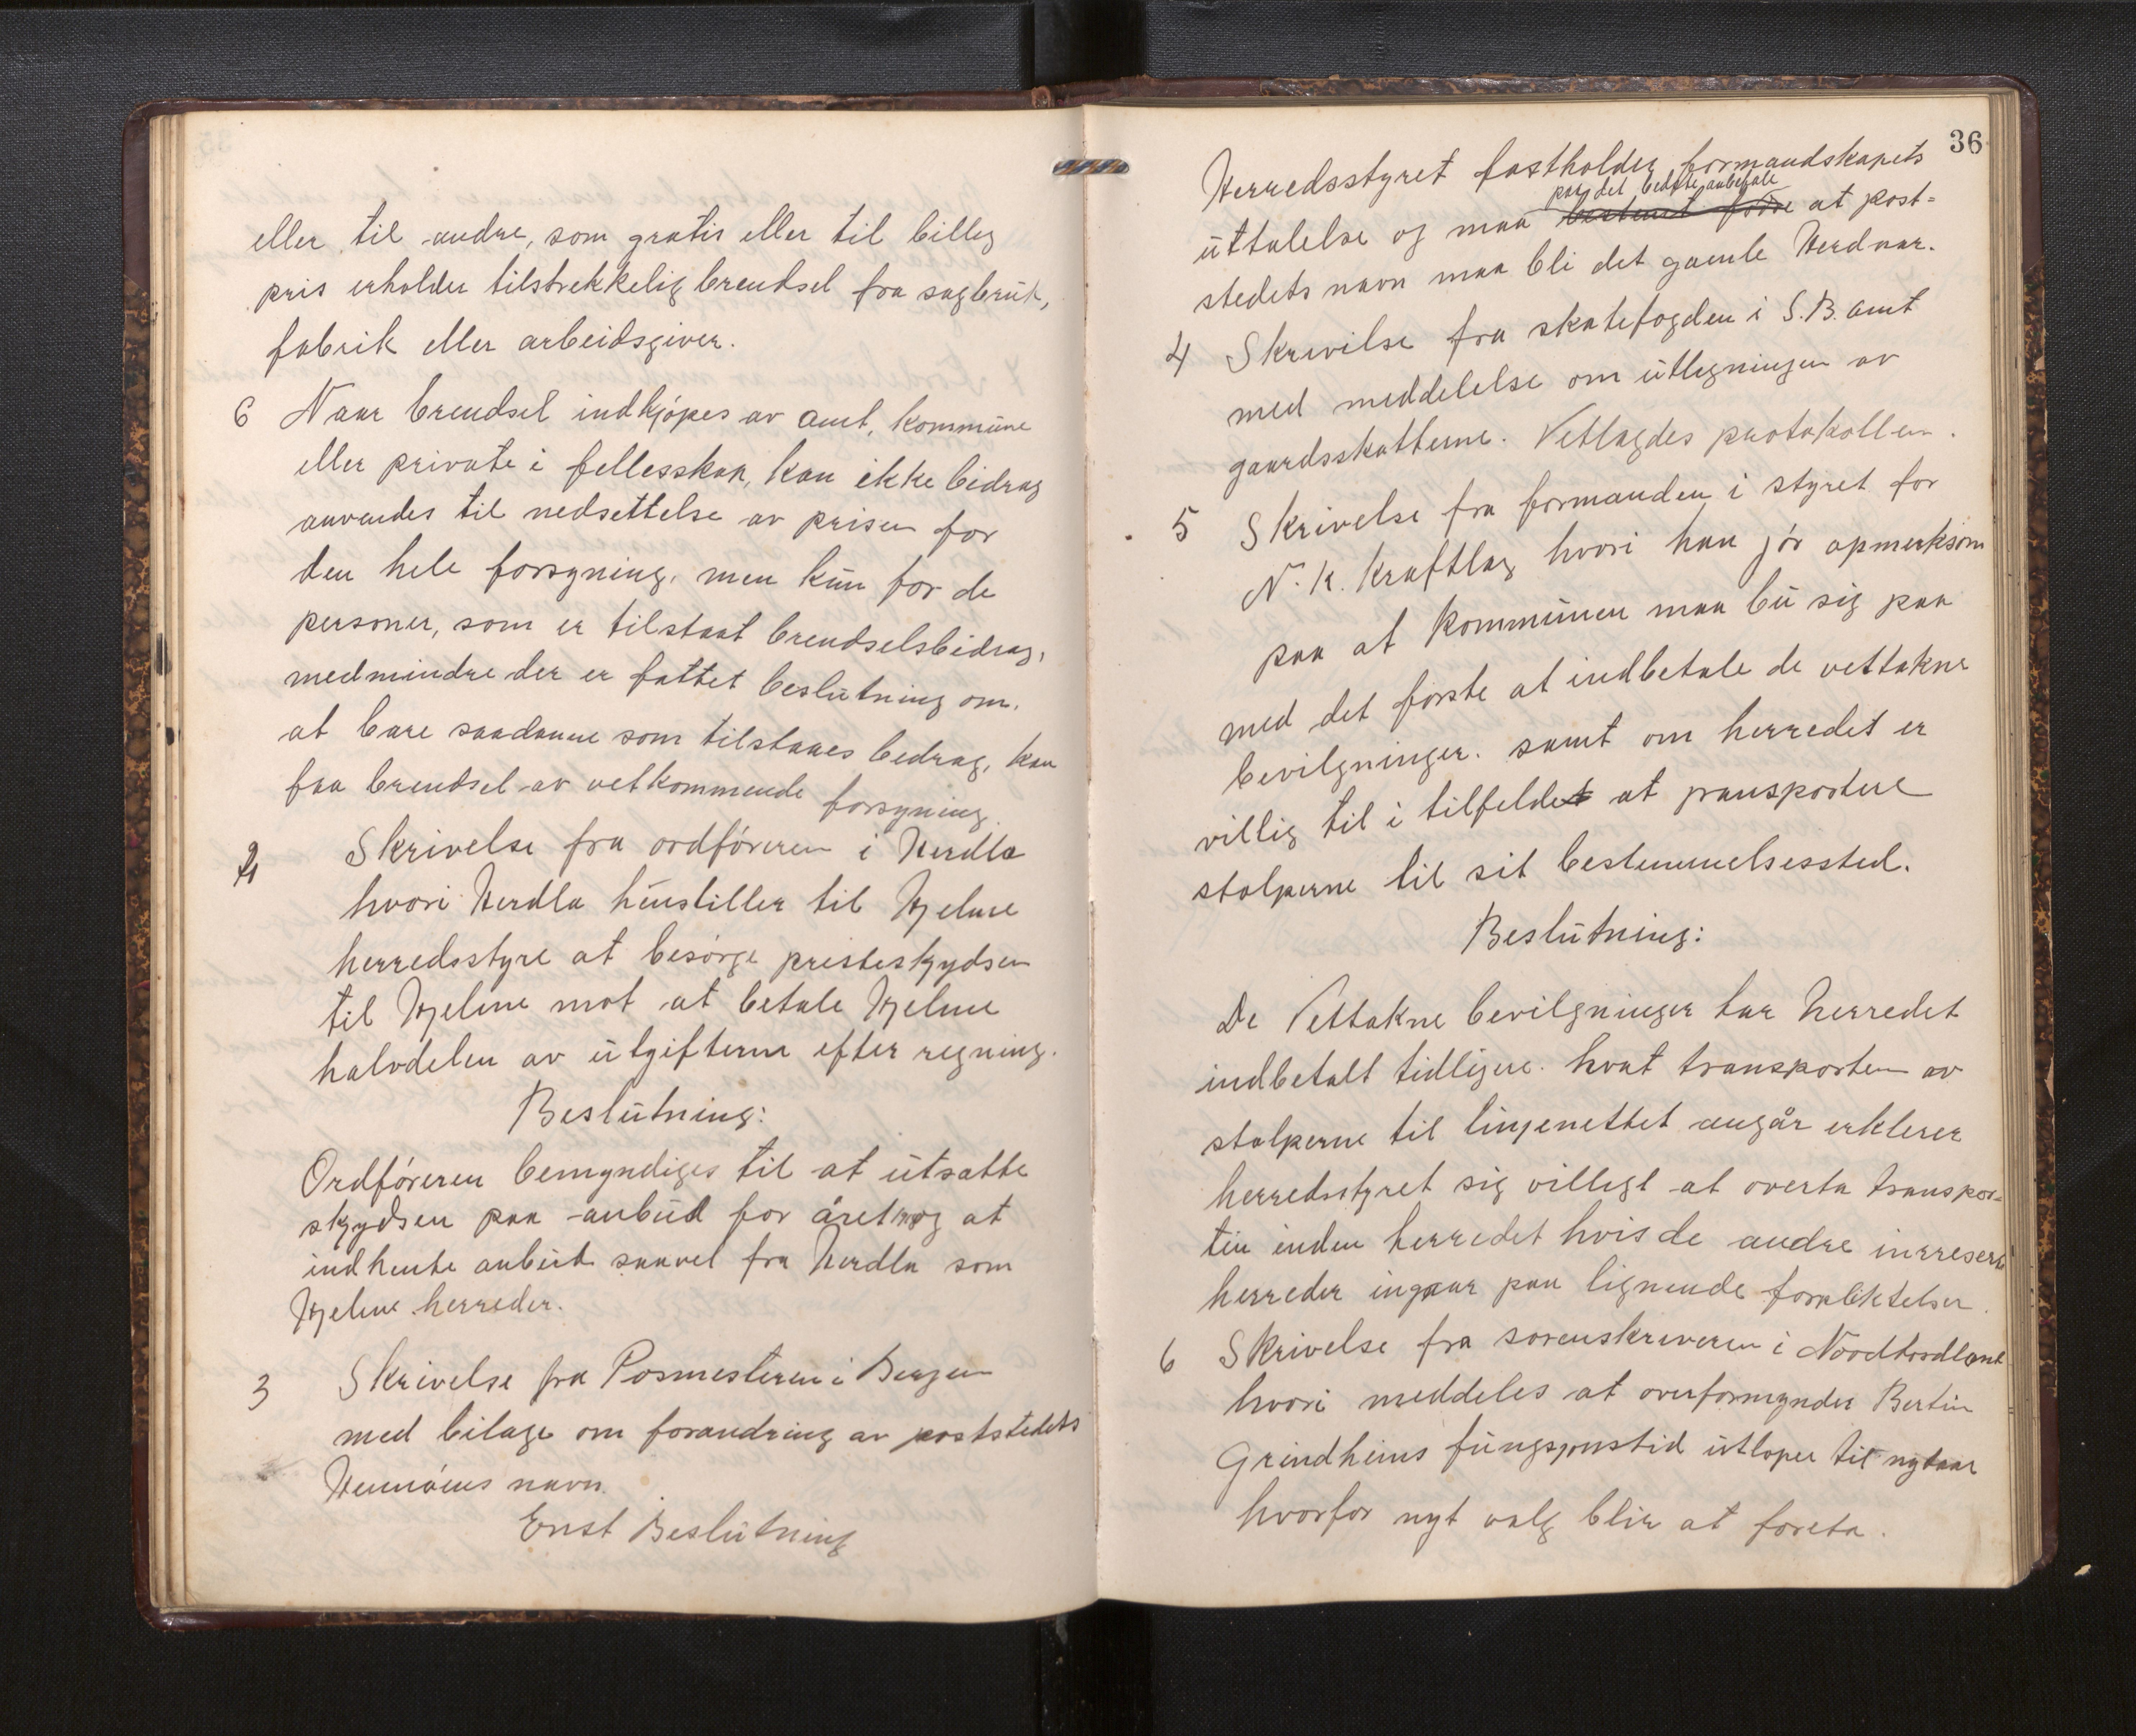 eller til andre, som gratis eller til billeg
pris erholder tilstrekkelig brendsel fra sagbruk,
fabrik eller arbeidsgiver.
6 Naar brendsel indkjøpes av amt, kommune
eller private i fellesskap, kan ikke bidrag
anvendes til nedsettelse av prisen for
den hele forsyning, men kun for de
personer, som er tilstaat brendselsbidrag,
medmindre der er fattet beslutning om,
at bare saadanne som tilstaaes bedrag, kan
faa brendsel av vetkommende forsyning.
2 Skrivelse fra ordføreren i Herdla
hvori Herdla henstiller til Hjelme
herredsstyre at besørge presteskydsen
til Hjelme mot at betale Hjelme
halvdelen av utgifterne efter regning.
Beslutning:
Ordføreren bemyndiges til at utsatte
skydsen paa anbud for året og at
indhente anbud saavel fra Herdla som
Hjelme herreder.
3 Skrivelse fra Posmesteren i Bergen
med bilage om forandring av poststedets
navn.
Enst Beslutning
36
Herredsstyret fastholder formandskapets
paa det bedste anbefale
uttalelse og maa at post-
stedets navn maa bli det gamle
4 Skrivilse fra skatefogden i S.B. amt
med meddelelse om utlegningen av
gaardsskatterne. Vetlagdes protokollen.
5 Skrivelse fra formanden i styret for
N. K. Kraftlag hvori han jør opmerksom
paa at kommunen maa bu sig paa
med det første at indbetale de vettakne
bevilgninger. samt om herredet er
villig til i tilfeldet at transportere
stolperne til sit bestemmelsessted.
Beslutning:
De Vettakne bevilgninger har herredet
indbetalt tidligere. hvat transporten av
stolperne til linjenettet angår erklerer
herredsstyret sig villigt at overta transpor-
ten inden herredet hvis de andre
herreder ingaar paa lignende forpliktelser.
6 Skrivelse fra sorenskriveren i Nordhordland
hvori meddeles at overformynder Bertin
Grindheims fungsjonstid utløper til nytaar
hvorfor nyt valg blir at foreta.